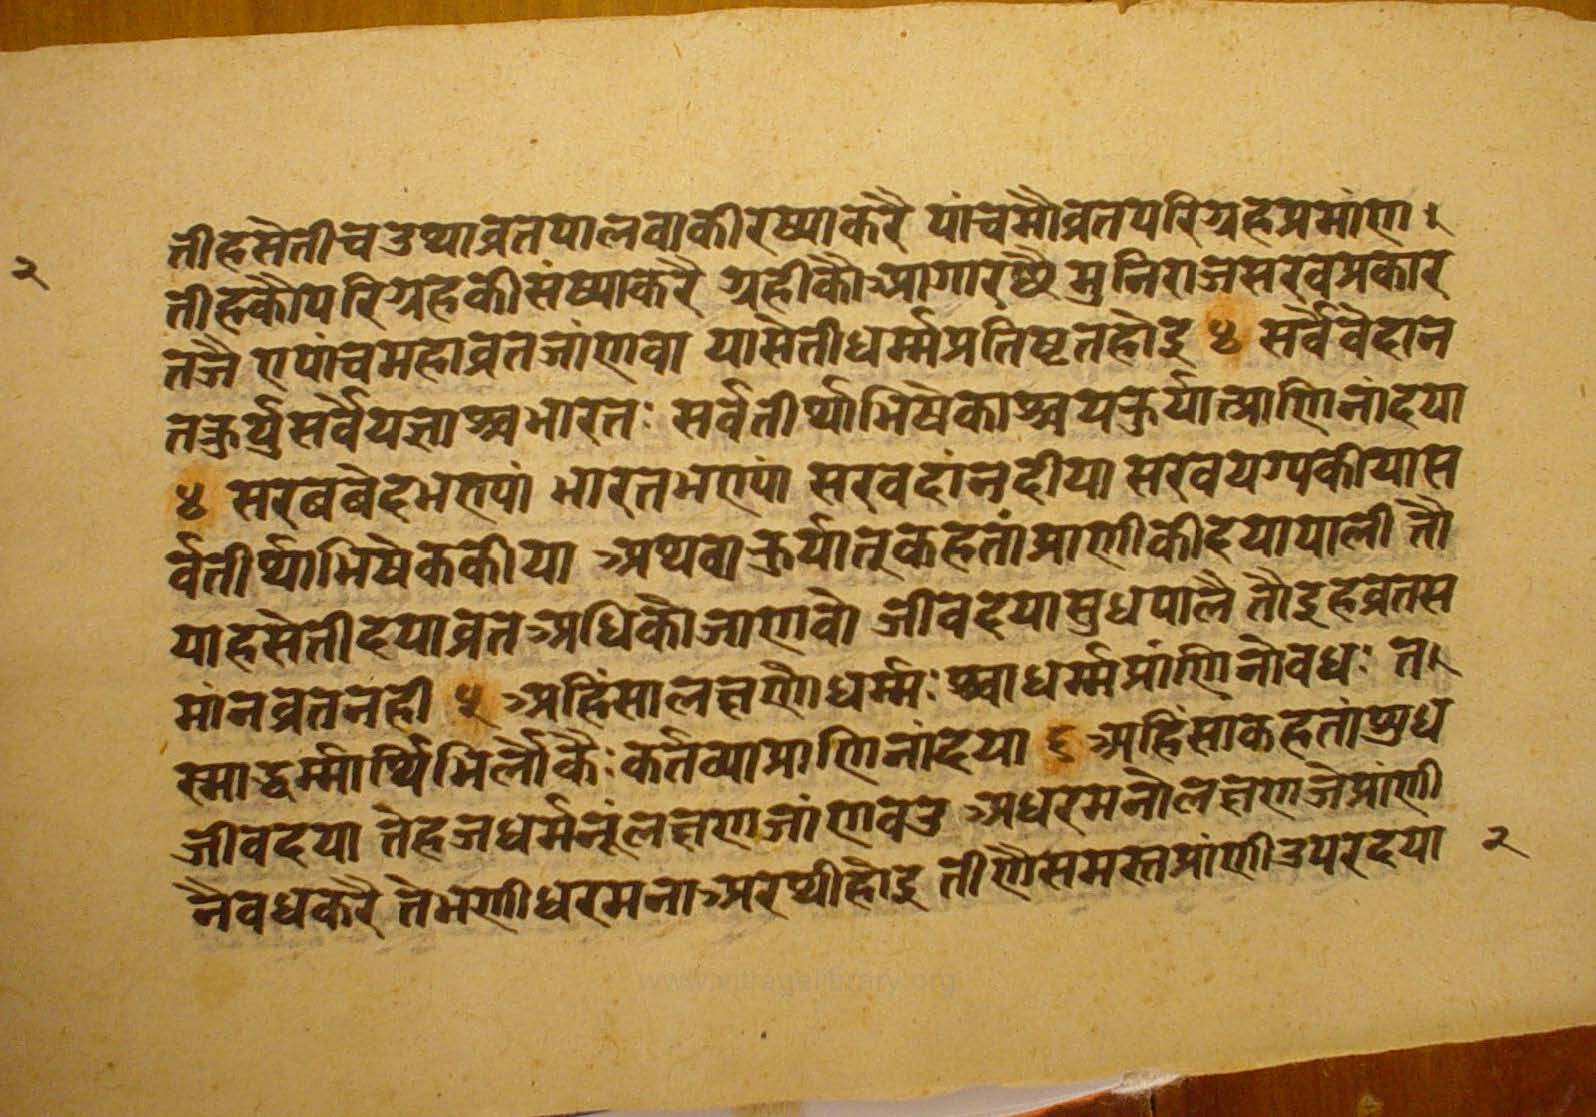 तीहसेतीचउथाव्रतपालवाकीरष्याकरै पांचमौव्रतपरिग्रहप्रमांण।
२
तीहकौपरिग्रहकीसंष्याकरै ग्रहीकौआगारछै मुनिराजसरवप्रकार
तजै एपांचमहाव्रतजांणवा यासेतीधर्म्मप्रतिष्टतहोइ ४ सर्वेवेदान
तक्रुर्युसर्वेयज्ञाश्चभारतः सर्वतीर्थाभिषेकाश्चयक्रुर्यात्प्राणिनांदया
४ सरबबेदभण्यां भारतभण्यां सरवदांनदीया सरवयग्यकीयास
र्वतीर्थाभिषेककीया अथवाक्रुर्यातूकहतांप्राणीकीदयापाली तौ
याहसेतीदयाव्रतअधिकौजाणवौ जीवदयासुधपालै तौइहव्रतस
मांनव्रतनही ५ अहिंसालक्षणौधर्म्मः श्चाधर्म्मप्रांणिनोवधः त।
स्माद्धर्म्मार्थिभिर्लोकैः कर्तव्याप्राणिनांदया ६ अहिंसाकहतांश्रुध
जीवदया तेहजधर्मनूंलक्षणजांणवउ अधरमनोलक्षणजेप्रांणी
नैवधकरै तेभणीधरमनाअरथीहोइ तीणैसमस्तप्रांणीउपरदया
२
www.vitragelibrary.org